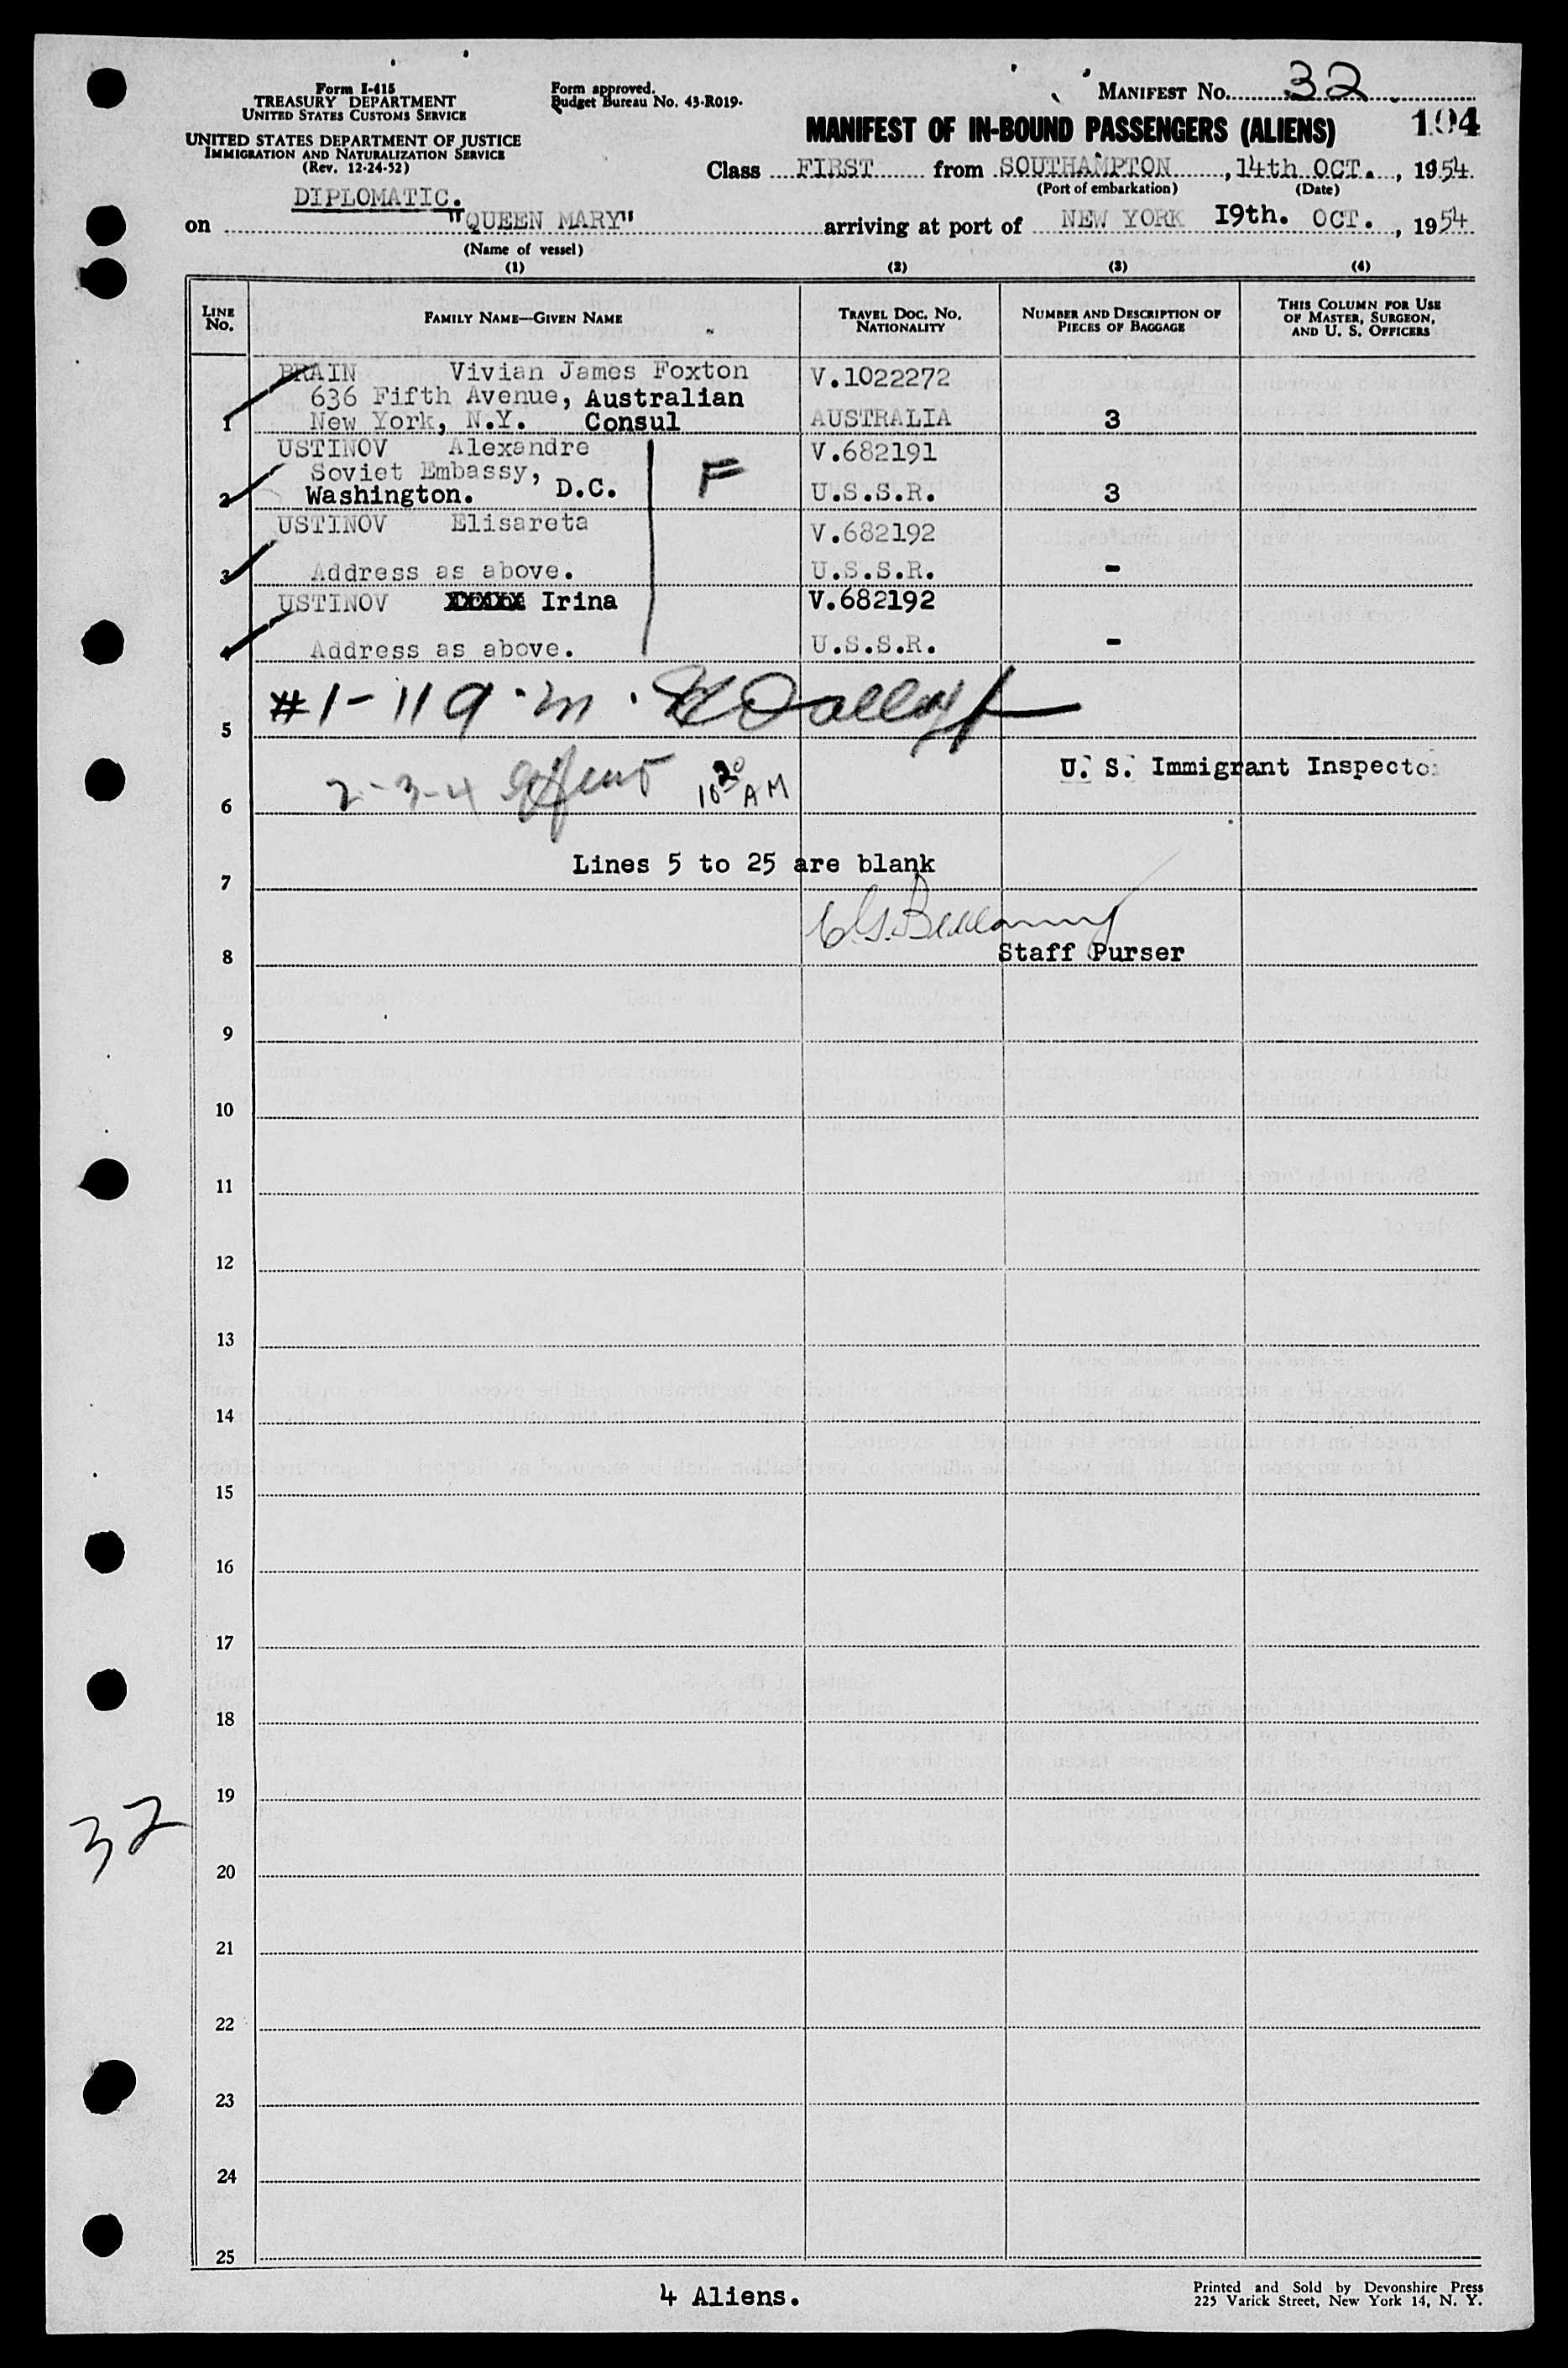 Form I-415
TREASURY DEPARTMENT
UNITED STATES CUSTOMS SERVICE
UNITED STATES DEPARTMENT OF JUSTICE
IMMIGRATION AND NATURALIZATION SERVICE
(Rev. 12-24-52)
Form approved.
Budget Bureau No. 43-R019.
MANIFEST NO. 32
104
MANIFEST OF IN-BOUND PASSENGERS (ALIENS)
Class FIRST from SOUTHAMPTON, 14th OCT., 1954
(Port of embarkation) (Date)
DIPLOMATIC.
on "QUEEN MARY" arriving at port of NEW YORK 19th. OCT., 1954
(Name of vessel)
(1) (2) (3) (4)
LINE No. FAMILY NAME—GIVEN NAME TRAVEL DOC. NO. NATIONALITY NUMBER AND DESCRIPTION OF PIECES OF BAGGAGE THIS COLUMN FOR USE OF MASTER, SURGEON, AND U. S. OFFICERS
BRAIN Vivian James Foxton V.1022272
636 Fifth Avenue, Australian
1 New York, N.Y. Consul AUSTRALIA 3
USTINOV Alexandre V.682191
Soviet Embassy, F
2 Washington. D.C. U.S.S.R. 3
USTINOV Elisareta V.682192
3 Address as above. U.S.S.R. -
USTINOV Irina V.682192
4 Address as above. U.S.S.R. -
#1-11 a.m.
5
U. S. Immigrant Inspector
2-3-4 10 20 AM
6
Lines 5 to 25 are blank
7
Staff Purser
8
9
10
11
12
13
14
15
16
17
18
19
32
20
21
22
23
24
25
4 Aliens.
Printed and Sold by Devonshire Press
225 Varick Street, New York 14, N. Y.